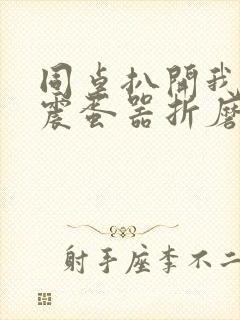 同桌扒開我
震蛋器折磨
射手座李不二